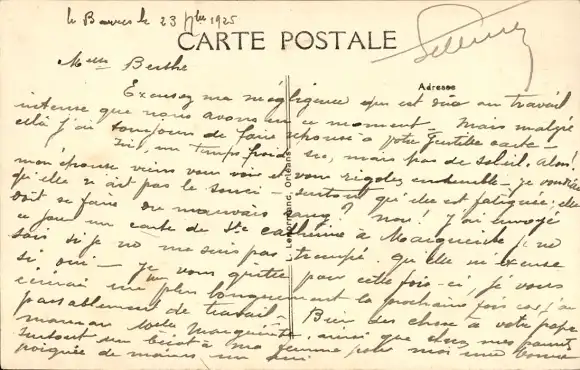 le 23 9bre 1925
CARTE POSTALE
Adresse
Melle Berthe
Excusez ma négligence qui est due au travail
intense que nous avons en ce moment - Mais malgré
celà j'ai toujours de faire réponse à votre Gentille carte -
Ici, un temps froid sec, mais pas de soleil. Alors!
mon épouse viens vous voir et vous rigolez ensemble - je voudrais
qu'elle n'ait pas le souci - surtout qu'elle est fatiguée; elle
doit se faire du mauvais sang? non! J'ai envoyé
ce jour une carte de Ste Catherine à Marguerite; ne
sais si je ne me suis pas trompé. qu'elle m'excuse
si oui - Je vous quitte pour cette fois-ci, je vous
écrirai un plus longuement la prochaine fois car j'ai
passablement de travail - Bien des choses à votre papa
maman Marguerite, ainsi que chez mes parents
surtout un bécot à ma femme pour moi une bonne
poignée de mains
L. Lenormand, Orléans